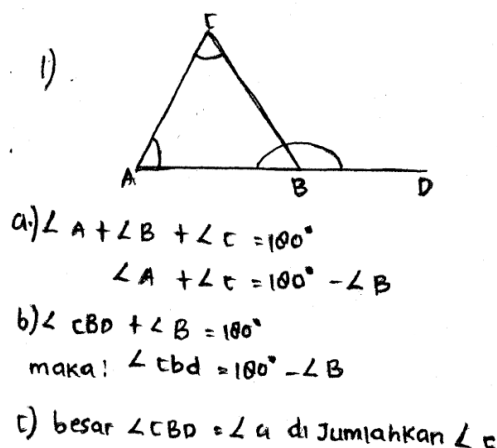 C
1)
A B D
a.) ∠ A + ∠ B + ∠ C = 180°
∠ A + ∠ C = 180° - ∠ B
b) ∠ CBD + ∠ B = 180°
maka: ∠ cbd = 180° - ∠ B
c) besar ∠CBD = ∠ a di Jumlahkan ∠ c